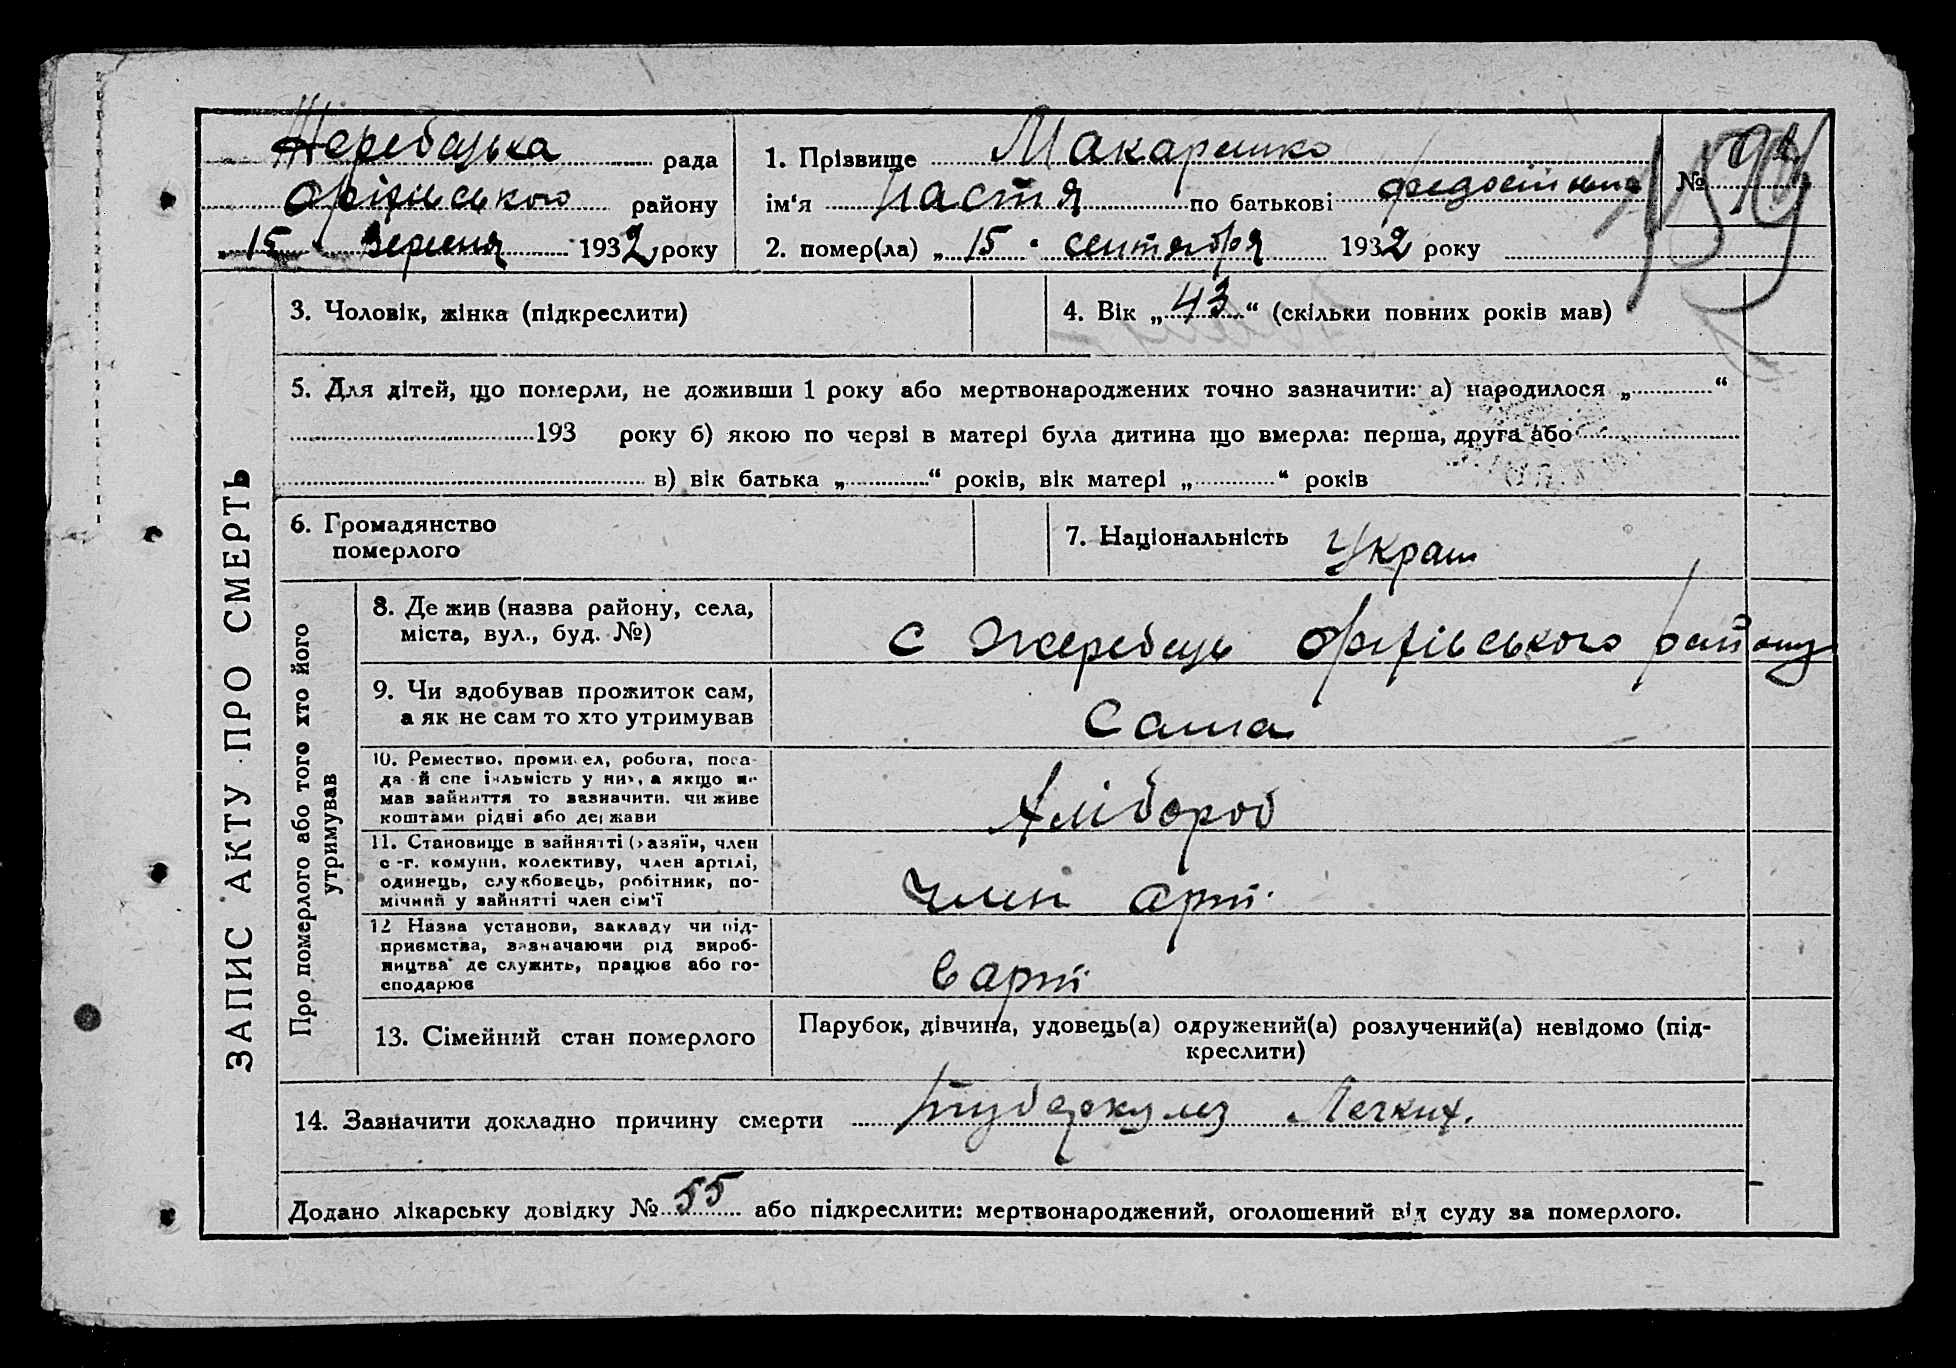 Жеребецька рада
Оріхівського району
„15" Вересня 1932 року
1. Прізвище Макаренко
ім'я Настя по батькові №
2. помер(ла) „15" сентября 1932 року
ЗАПИС АКТУ ПРО СМЕРТЬ
3. Чоловік, жінка (підкреслити)
4. Вік „43“ (скільки повних років мав)
5. Для дітей, що померли, не доживши 1 року або мертвонароджених точно зазначити: а) народилося „ “
193 року б) якою по черзі в матері була дитина що вмерла: перша, друга або
в) вік батька „ “ років, вік матері „ “ років
6. Громадянство
померлого
7. Національність Украін
Про померлого або того хто його
утримував
8. Де жив (назва району, села,
міста, вул., буд. №)
с Жеребець Оріхівського району
9. Чи здобував прожиток сам,
а як не сам то хто утримував
Сама
10. Ремество, промисел, робота, поса-
да й спеціяльність у них, а якщо не
мав зайняття то зазначити, чи живе
коштами рідні або держави
Хлібороб
11. Становище в зайнятті (хазяїн, член
с-г. комуни, колективу, член артілі,
одинець, службовець, робітник, по-
мічний у зайнятті член сім'ї
член арт.
12 Назва установи, закладу чи під-
приємства, зазначаючи рід вироб-
ництва де служить, працює або го-
сподарює
в арт.
13. Сімейний стан померлого
Парубок, дівчина, удовець(а) одружений(а) розлучений(а) невідомо (під-
креслити)
14. Зазначити докладно причину смерти туберкулез Легких.
Додано лікарську довідку № 55 або підкреслити: мертвонароджений, оголошений від суду за померлого.